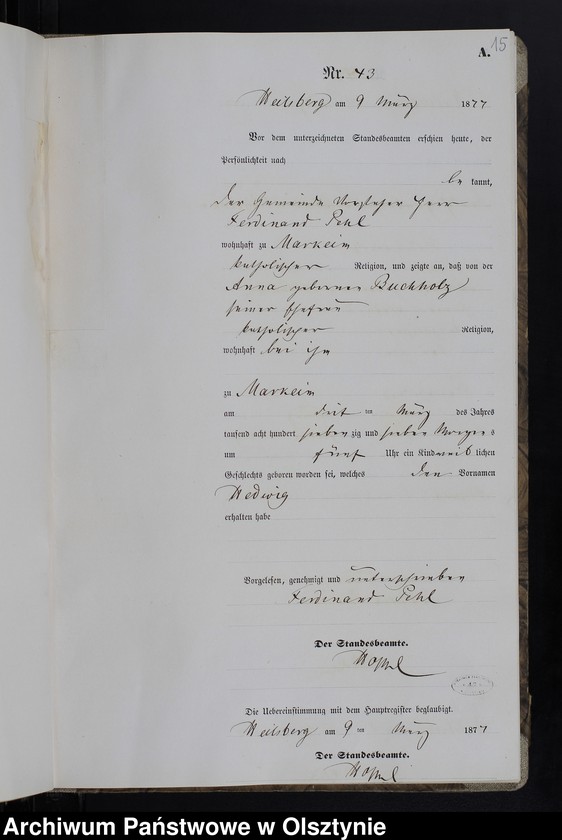 15
A.
Nr. 43
Heilsberg am 9 März 1877
Vor dem unterzeichneten Standesbeamten erschien heute, der
Persönlichkeit nach
be kannt,
der Gemeinde Vorsteher Herr
Ferdinand Pehl
wohnhaft zu Markeim
katholischer Religion, und zeigte an, daß von der
Anna geborenen Buchholz
seiner Ehefrau
katholischer Religion,
wohnhaft bei ihm
zu Markeim
am ten März des Jahres
tausend acht hundert sieben zig und sieben Morgens
um fünf Uhr ein Kind weib lichen
Geschlechts geboren worden sei, welches den Vornamen
Hedwig
erhalten habe
Vorgelesen, genehmigt und unterschrieben
Ferdinand Pehl
Der Standesbeamte.
Die Uebereinstimmung mit dem Hauptregister beglaubigt.
Heilsberg am 9 ten März 1877
Der Standesbeamte.
Archiwum Państwowe w Olsztynie